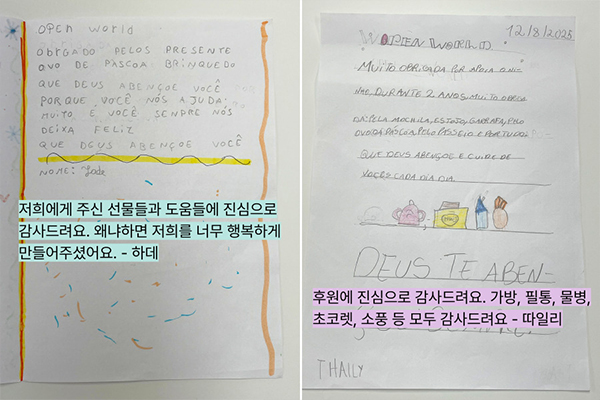 OPEN WORLD
OBRGADO PELOS PRESENTE
OVO DE PASCOA BRINQUEDO
QUE DEUS ABENÇOE VOCÊ
PORQUE VOCÊ NÓS AJUDA
MUITO E VOCÊ SEMPRE NÓS
DEIXA FELIZ
QUE DEUS ABENÇOE VOCÊ
NOME: Jade
저희에게 주신 선물들과 도움들에 진심으로
감사드려요. 왜냐하면 저희를 너무 행복하게
만들어주셨어요. - 하데
12/8/2025
WOPEN WORLD
MUITO OBRIGADA POR APOIA O NI=
NHO, DURANTE 2 ANOS. MUITO OBRIGA
DA PELA MOCHILA, ESTOJO, GARRAFA, PELO
OVO DA PÁSCOA, PELO PASSEIO E POR TUDO
QUE DEUS ABENÇOE E CUIDE DE
VOCÊS CADA DIA
DEUS TE ABEN=
후원에 진심으로 감사드려요. 가방, 필통, 물병,
초코렛, 소풍 등 모두 감사드려요 - 따일리
THAILY